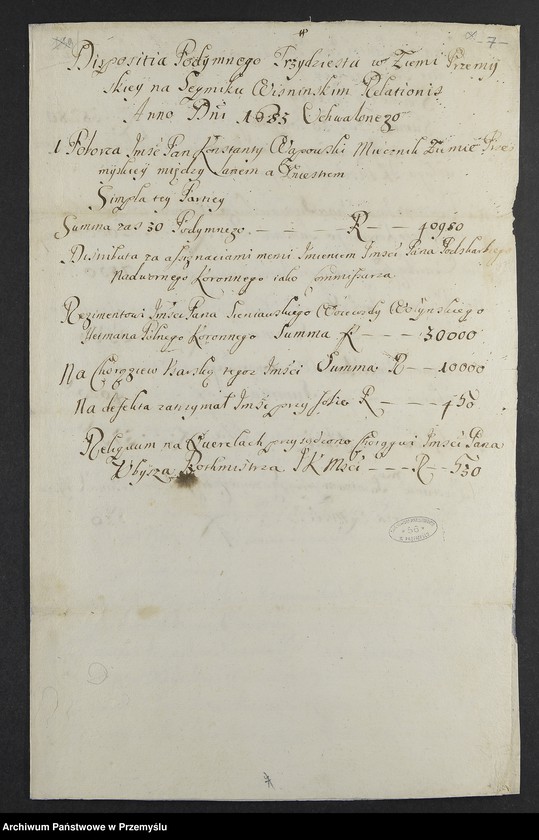 -7-
Dispositia Podymnego Trzydziesta w Ziemi Przemy
skiey na Seymiku Wisninskim Relationis
Anno Dni 1685 Uchwalonego
1 Poborca Imść Pan Konstanty Wapowski Miecznik Ziemie Prze
myskiey między Sanem a Dniestrem
Simpla tey Partiey
Summa zas 30 Podymnego R 40980
za assignaciami memi Imieniem Imści Pana Podskarbiego
Nadwornego Koronnego iako Commissarza
Regimentowi Imści Pana Sieniawskiego Woiewody Wołynskiego
Hetmana Polnego Koronnego Summa R 30000
Na Chorągiew Usarską tegoz Imści Summa R 10000
Na defekta zatrzymał Imść przy sobie R 450
Reliquum na Querelach przysądzono Chorągwi Imści Pana
Rothmistrza JK Mści R 530
58
Archiwum Państwowe w Przemyślu